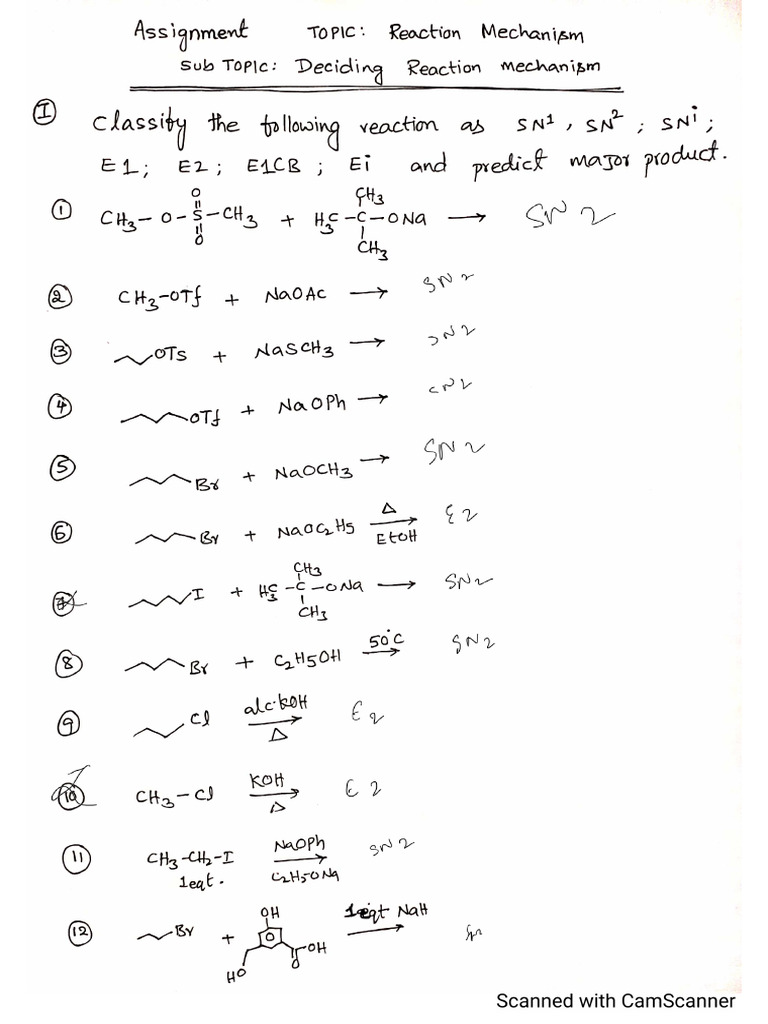 Assignment TOPIC: Reaction Mechanism
SUB TOPIC: Deciding Reaction mechanism
I Classify the following reaction as SN1, SN2 ; SNi ;
E1; E2; E1CB ; Ei and predict major product.
1 CH3-O-S-CH3 + H3C-C-ONa → SN2
O
O
CH3
CH3
2 CH3-OTf + NaOAc → SN2
3 OTS + NaSCH3 → SN2
4 OTf + NaOPh → SN2
5 Br + NaOCH3 → SN2
6 Br + NaOC2H5 Δ EtOH → E2
7 I + H3C-C-ONa → SN2
CH3
CH3
8 Br + C2H5OH 50°C → SN2
9 Cl alc·KOH Δ → E2
10 CH3-Cl KOH Δ → E2
11 CH3-CH2-I NaOPh → SN2
1eqt. C2H5ONa
12 Br + OH OH HO O 1eqt NaH →
Scanned with CamScanner